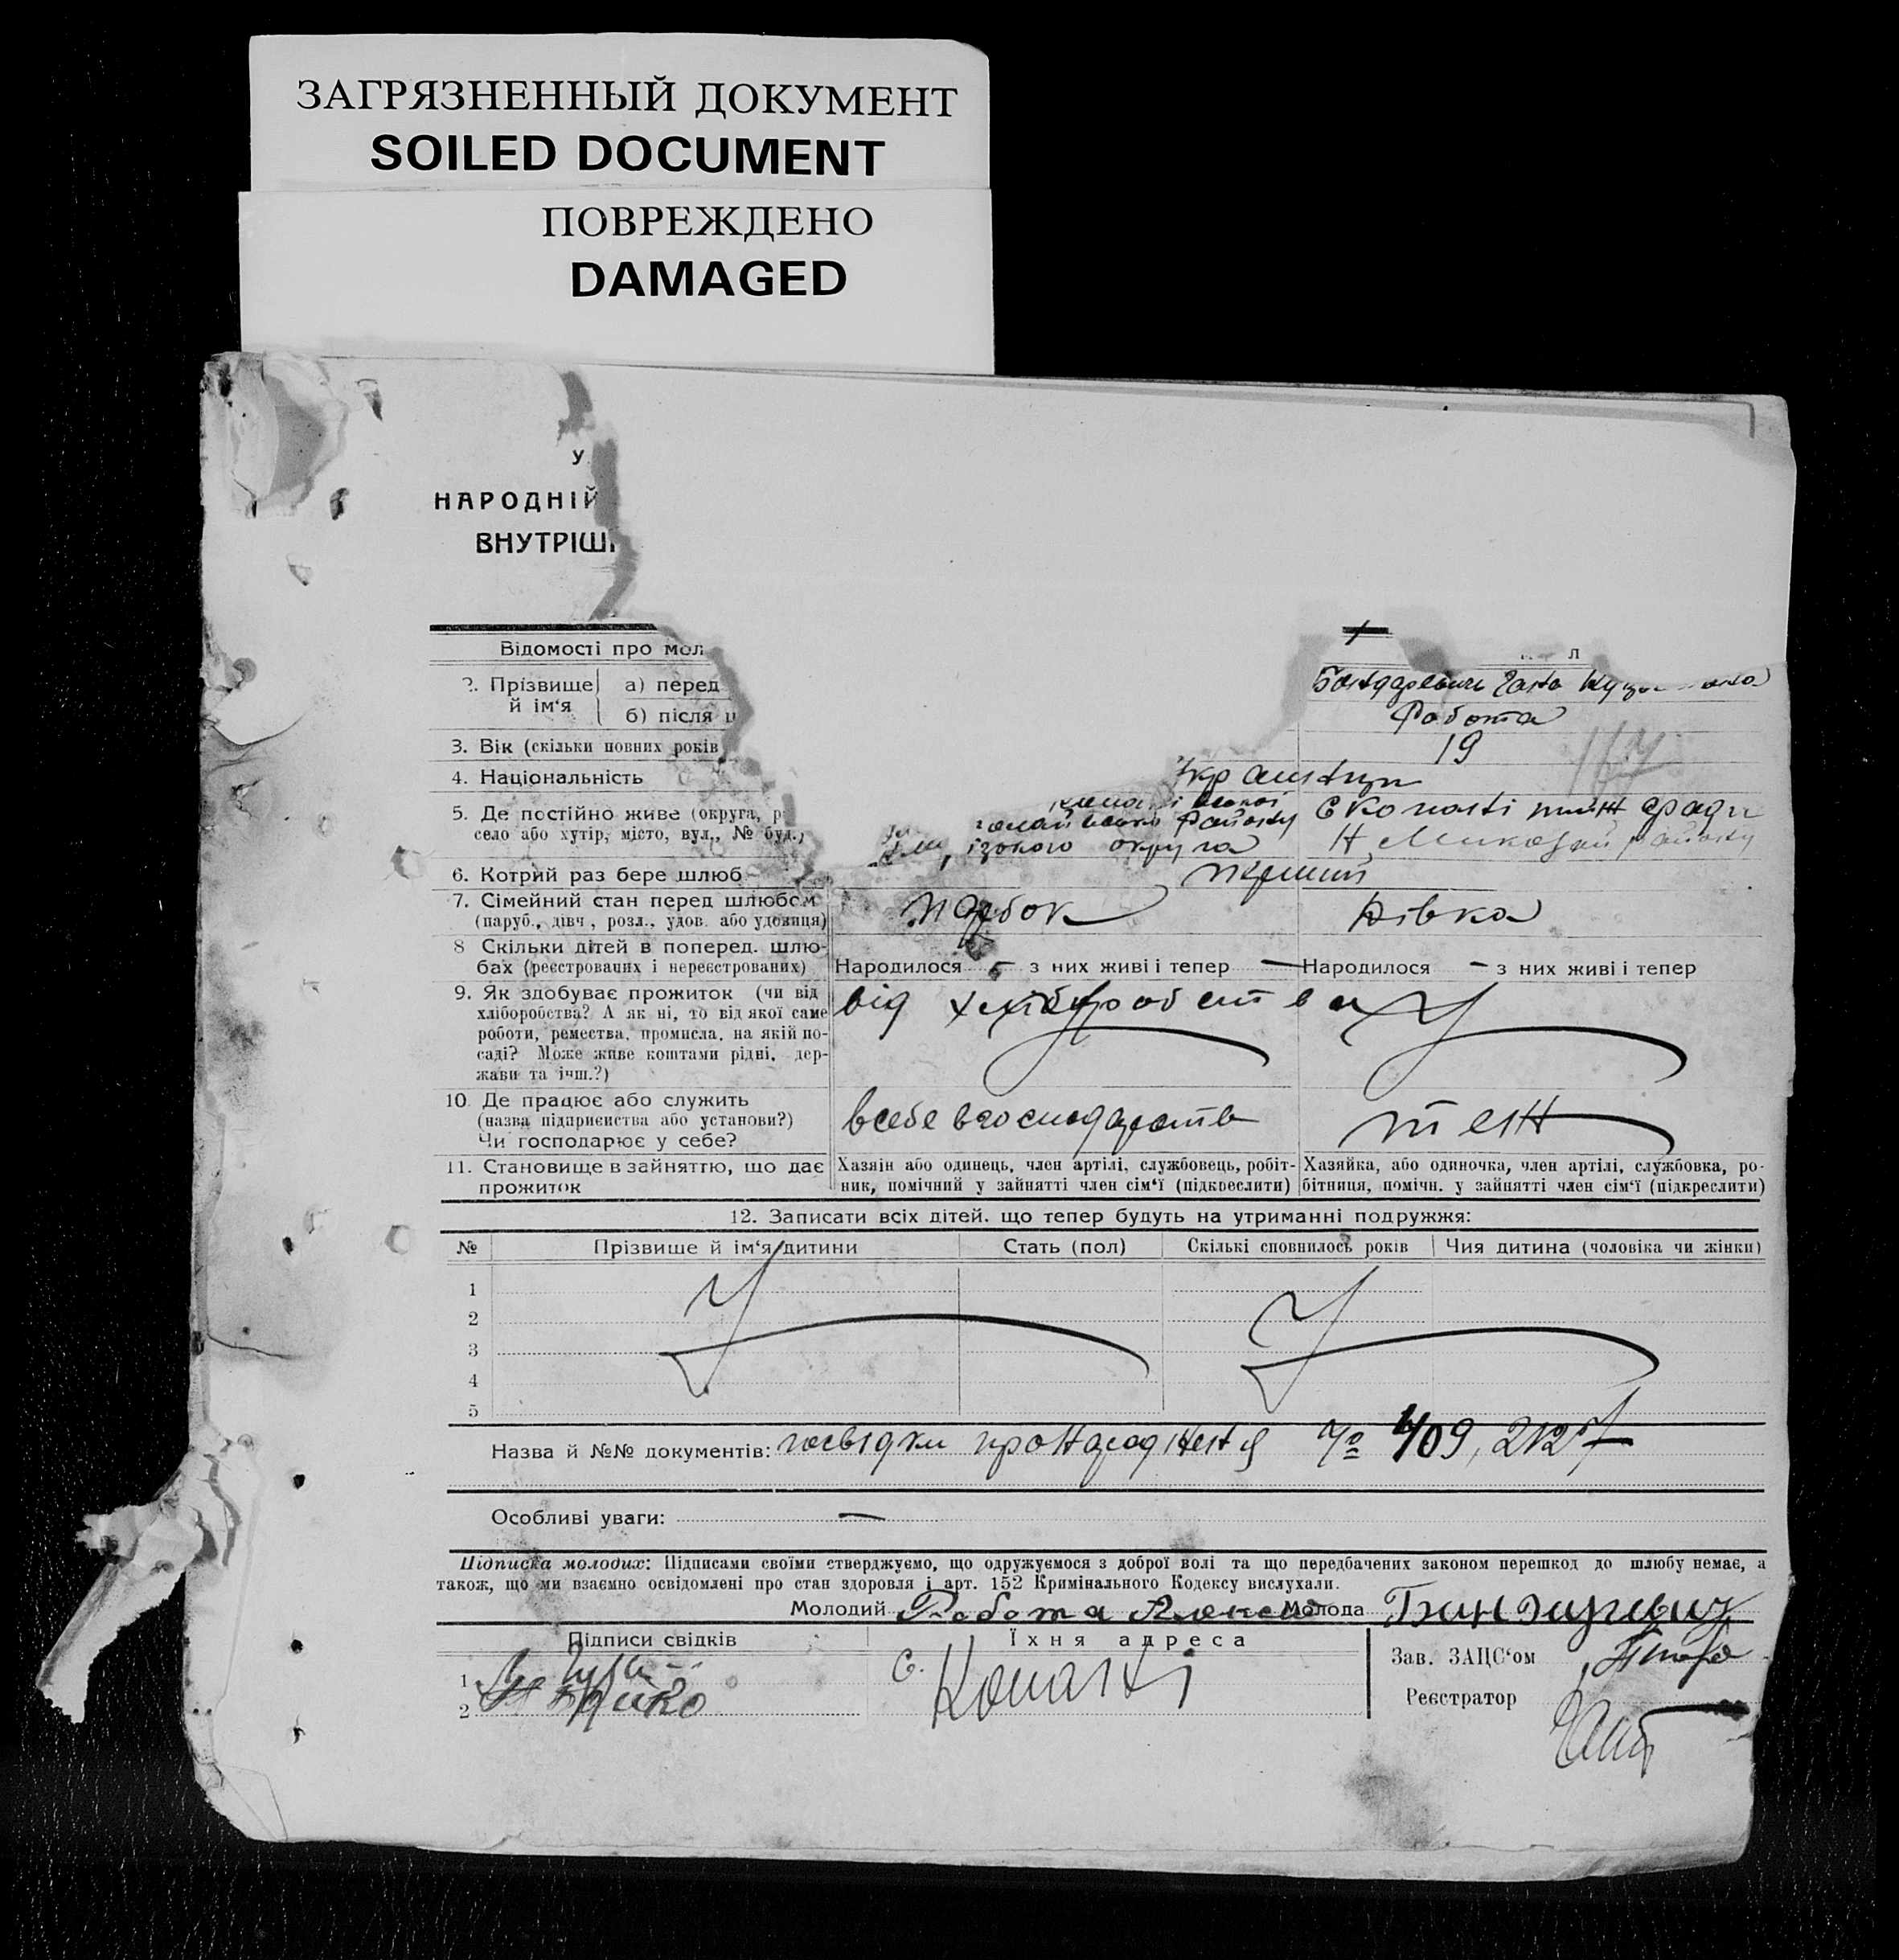 ЗАГРЯЗНЕННЫЙ ДОКУМЕНТ
SOILED DOCUMENT
ПОВРЕЖДЕНО
DAMAGED
У
НАРОДНІЙ
ВНУТРІШ
Відомості про мол
2. Прізвище й ім‘я
а) перед
Бондаревич Гана
б) після
Робота
3. Вік (скільки повних років
19
4. Національність
5. Де постійно живе (округа, р
село або хутір, місто, вул., № буд.,
району
округа
с Копані
району
6. Котрий раз бере шлюб
перший
7. Сімейний стан перед шлюбом
(паруб., дівч., розл., удов. або удовиця)
парубок
дівка
8 Скільки дітей в поперед. шлюбах (реєстрованих і нереєстрованих)
Народилося - з них живі і тепер —
Народилося - з них живі і тепер
9. Як здобуває прожиток (чи від
хліборобства? А як ні, то від якої саме
роботи, ремества, промисла, на якій по-
саді? Може живе коштами рідні, дер-
жави та інш.?)
від хліборобства
10. Де працює або служить
(назва підприємства або установи?)
Чи господарює у себе?
в себе в господарств
теж
11. Становище в зайняттю, що дає
прожиток
Хазяін або одинець, член артілі, службовець, робіт-
ник, помічний у зайнятті член сім‘ї (підкреслити)
Хазяйка, або одиночка, член артілі, службовка, ро-
бітниця, помічн. у зайнятті член сім‘ї (підкреслити)
12. Записати всіх дітей, що тепер будуть на утриманні подружжя:
№ Прізвище й ім‘я дитини Стать (пол) Скількі сповнилось років Чия дитина (чоловіка чи жінки)
1
2
3
4
5
Назва й №№ документів: посвідки про народження № 409, 2127
Особливі уваги: —
Підписка молодих: Підписами своїми стверджуємо, що одружуємося з доброї волі та що передбачених законом перешкод до шлюбу немає, а
також, що ми взаємно освідомлені про стан здоровля і арт. 152 Кримінального Кодексу вислухали.
Молодий Робота Молода Бандаревич
Підписи свідків Їхня адреса
Зав. ЗАЦС‘ом
1
С. Копані
Реєстратор
2